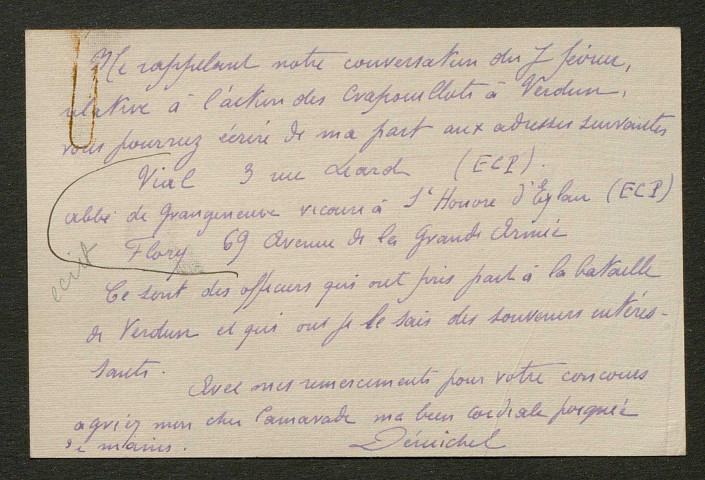 Me rappelant notre conversation du 7 février,
relative à l'action des Crapouillots à Verdun,
vous pourrez écrire de ma part aux adresses suivantes
Vial 3 rue (ECP).
abbé de Grangeneuve vicaire à St Honoré d'Eylau (ECP)
Flory 69 Avenue de la Grande Armée
écrit
Ce sont des officiers qui ont pris part à la bataille
de Verdun et qui ont je le sais des souvenirs intéres-
sants.
Avec mes remerciements pour votre concours
agréez mon cher Camarade ma bien cordiale poignée
de mains. Démichel